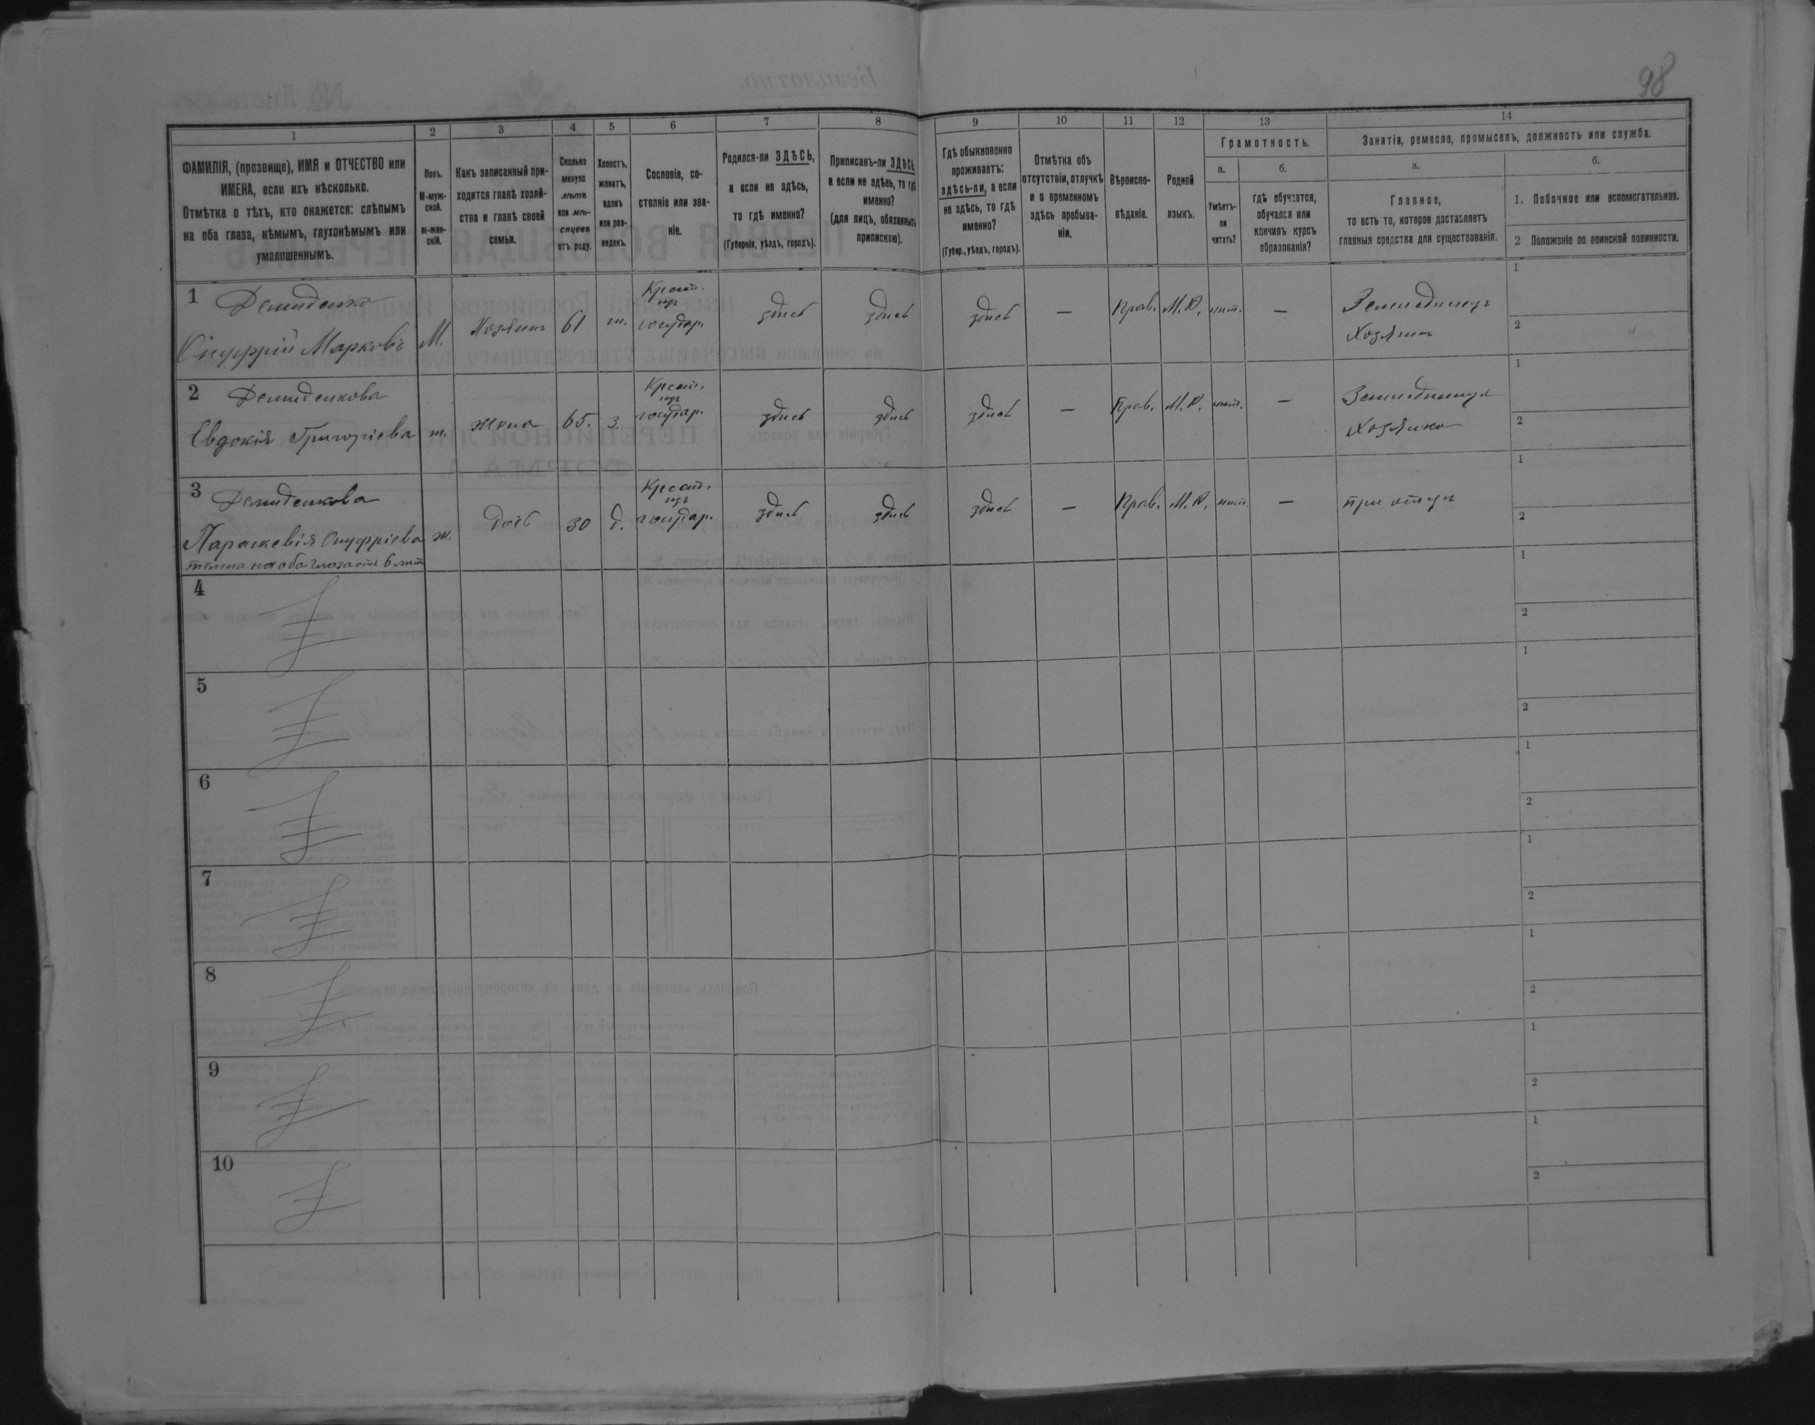 98
1 2 3 4 5 6 7 8 9 10 11 12 13 14
ФАМИЛІЯ, (прозвище), ИМЯ и ОТЧЕСТВО или
ИМЕНА, если ихъ нѣсколько.
Отмѣтка о тѣхъ, кто окажется: слѣпымъ
на оба глаза, нѣмымъ, глухонѣмымъ или
умалишеннымъ.
Полъ.
М-муж-
ской.
ж-жен-
скій.
Какъ записанный при-
ходится главѣ хозяй-
ства и главѣ своей
семьи.
Сколько
минуло
лѣтъ
или мѣ-
сяцевъ
отъ роду.
Холостъ,
женатъ,
вдовъ
или раз-
веденъ.
Сословіе, со-
стояніе или зва-
ніе.
Родился-ли ЗДѢСЬ,
а если не здѣсь,
то гдѣ именно?
(Губернія, уѣздъ, городъ).
Приписанъ-ли ЗДѢСЬ,
а если не здѣсь, то гдѣ
именно?
(для лицъ, обязанныхъ
припискою).
Гдѣ обыкновенно
проживаетъ:
здѣсь-ли, а если
не здѣсь, то гдѣ
именно?
(Губер., уѣздъ, городъ).
Отмѣтка объ
отсутствіи, отлучкѣ
и о временномъ
здѣсь пребыва-
ніи.
Вѣроиспо-
вѣданіе.
Родной
языкъ.
Грамотность.
а.
Умѣетъ-
ли
читать?
б.
гдѣ обучается,
обучался или
кончилъ курсъ
образованія?
Занятія, ремесло, промыселъ, должность или служба.
а.
Главное,
то есть то, которое доставляетъ
главныя средства для существованія.
б.
1. Побочное или вспомогательное.
2 Положеніе по воинской повинности.
1 Демиденко
Онуфрій Марковъ М. Хозяинъ 61 ж. Крест. изъ государ. здѣсь здѣсь здѣсь — Прав. М.Р. нѣт. — Земледѣлецъ Хозяинъ 1 2
2 Демиденкова
Евдокія Григоріева ж. жена 65. з. Крест. изъ государ. здѣсь здѣсь здѣсь — Прав. М.Р. нѣт. — Земледѣлица Хозяйка 1 2
3 Демиденкова
Параскевія Онуфріева ж. дочь 30 д. Крест. изъ государ. здѣсь здѣсь здѣсь — Прав. М.Р. нѣт. — при отцѣ 1 2
темна на оба глаза отъ 6 лѣт
4 1 2
5 1 2
6 1 2
7 1 2
8 1 2
9 1 2
10 1 2